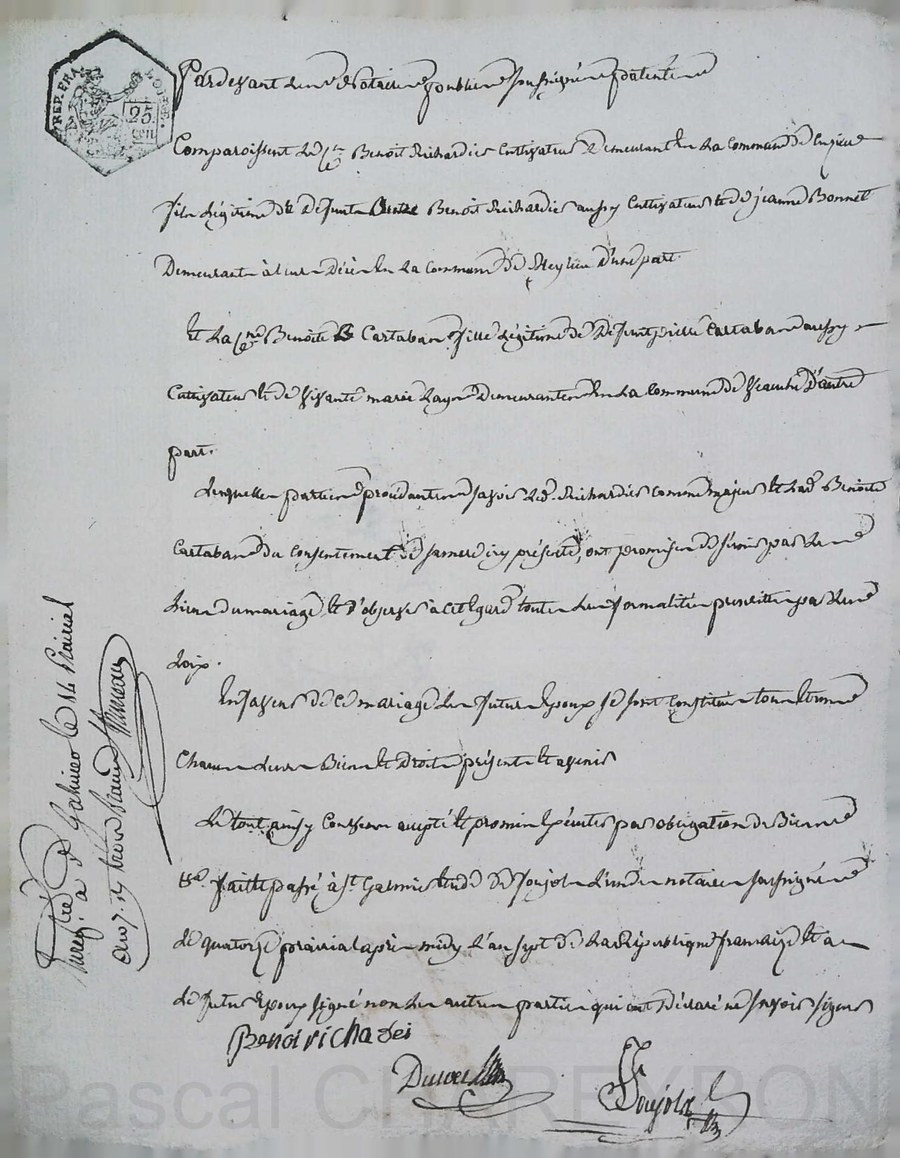 REP. FRA. LOIRE.
25 cen
Pardevant Les Notaires publics soussignés patentés
Comparoissent Le Cen Benoit Richardier Cultivateur Demeurant En La Commune De
fils Légitime de Défunt Benoit Richardier aussy Cultivateur Et de jeanne Bonnet
Demeurant à Leur Décès En La Commune De d'une part.
Et La Cene Benoite Cartaban fille Légitime De Défunt Cartaban aussy
Cultivateur Et de vivante marie Demeurantes En La Commune De d'autre
part.
Lesquelles parties procédantes savoir Led. Richardier comme majeur Et Lad. Benoite
Cartaban du Consentement de sa mere icy présente, ont promis de s'unir par Les
Liens du mariage Et d'observer à cet Egard toutes Les formalités prescrittes par Les
Loix.
En faveur de Ce mariage Les futurs Epoux se sont Constitués tous Et uns
Chacun Leurs Biens Et Droits présents Et avenir
Le tout ainsy Convenu accepté Et promis Exécuter par obligation de Biens
Fait Et passé à St. Galmier Etude De Soujol L'un des notaires soussignés
Le quatorze prairial après midy L'an sept de La République française Et a
Le futur Epoux signé non Les autres parties qui ont déclaré ne savoir signer
Benoi richa dei
Soujol
Enregité à Galmier le 14 Prairial
an 7.
Pascal CHAREYRON